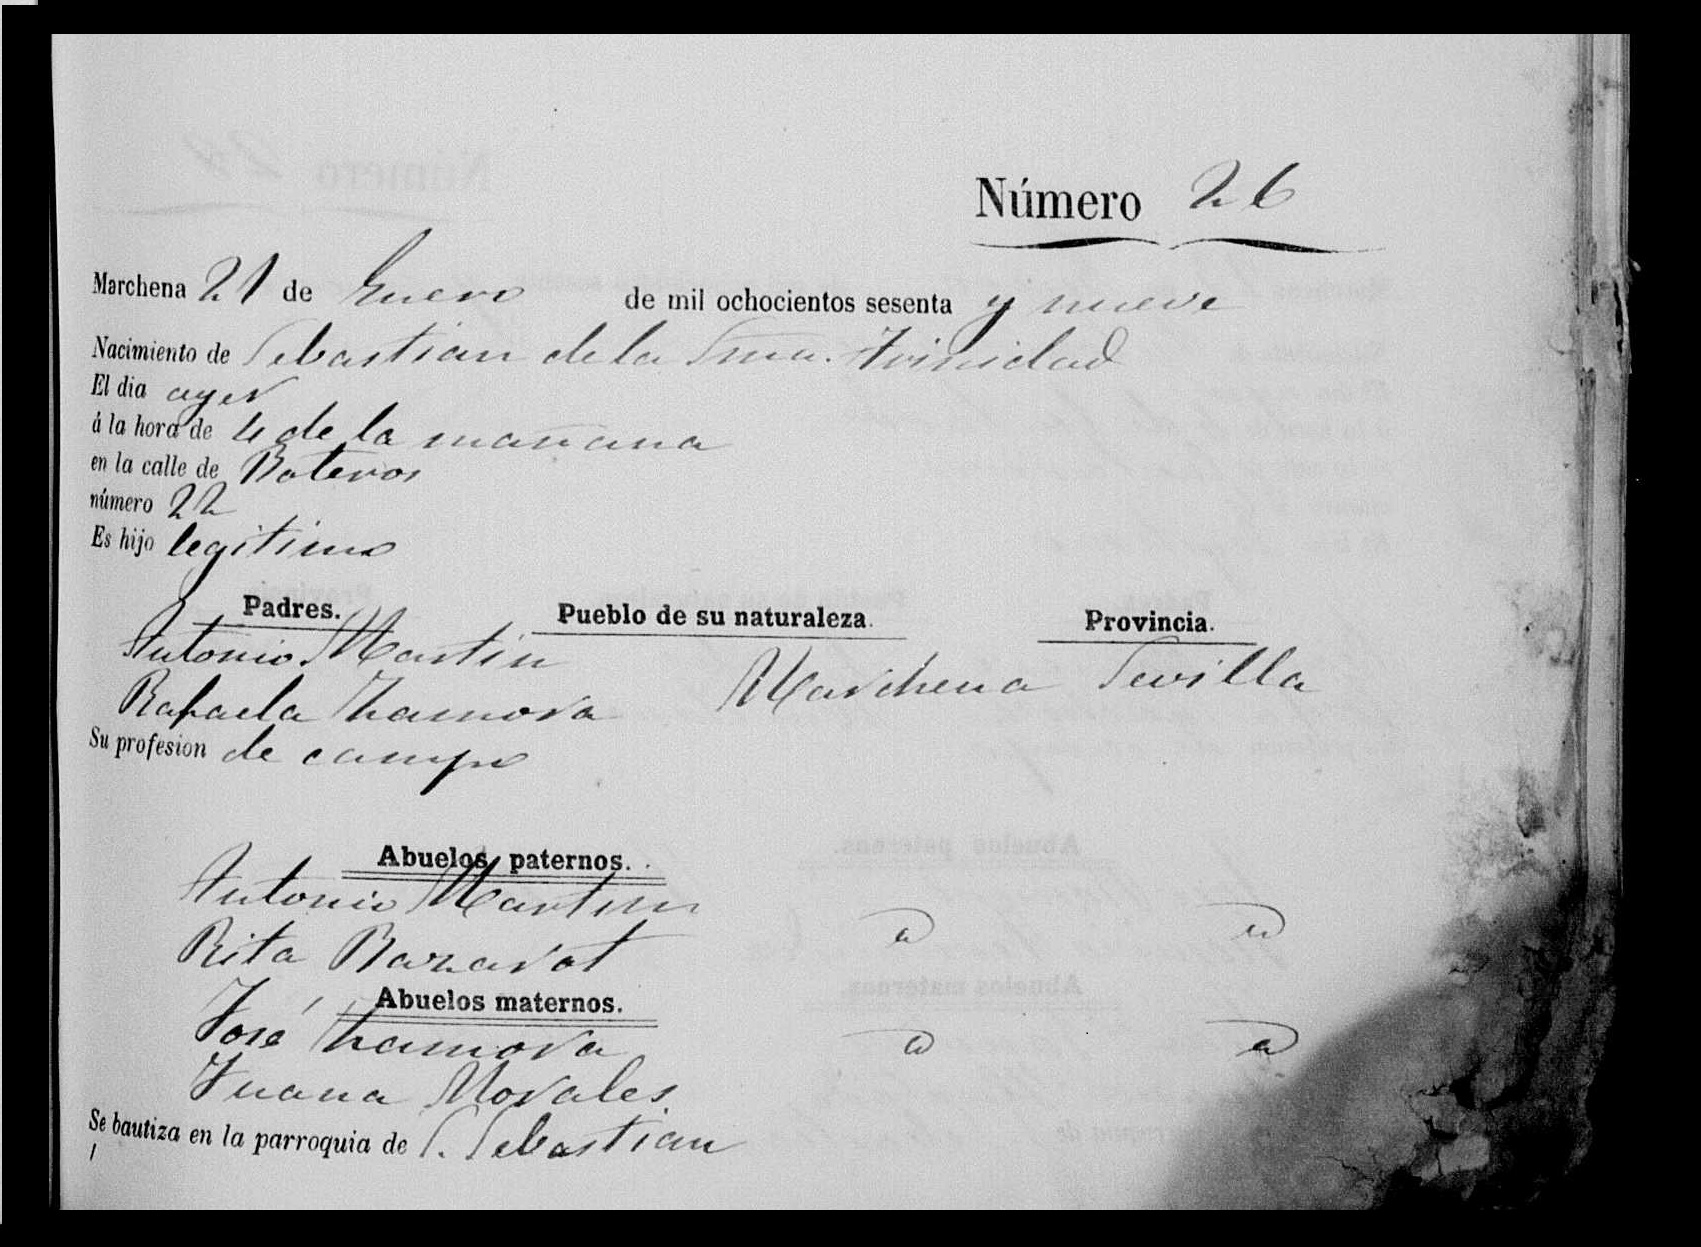 Número 26
Marchena 21 de Enero de mil ochocientos sesenta y nueve
Nacimiento de Sebastian de la Sma. Trinidad
El dia ayer
á la hora de 4 de la mañana
en la calle de Boteros
número 22
Es hijo legitimo
Padres. Pueblo de su naturaleza. Provincia.
Antonio Martin
Marchena Sevilla
Rafaela Zamora
Su profesion de campo
Abuelos paternos.
Antonio Martin
Rita Bazarot
Abuelos maternos.
José Zamora
Juana Morales
Se bautiza en la parroquia de S. Sebastian